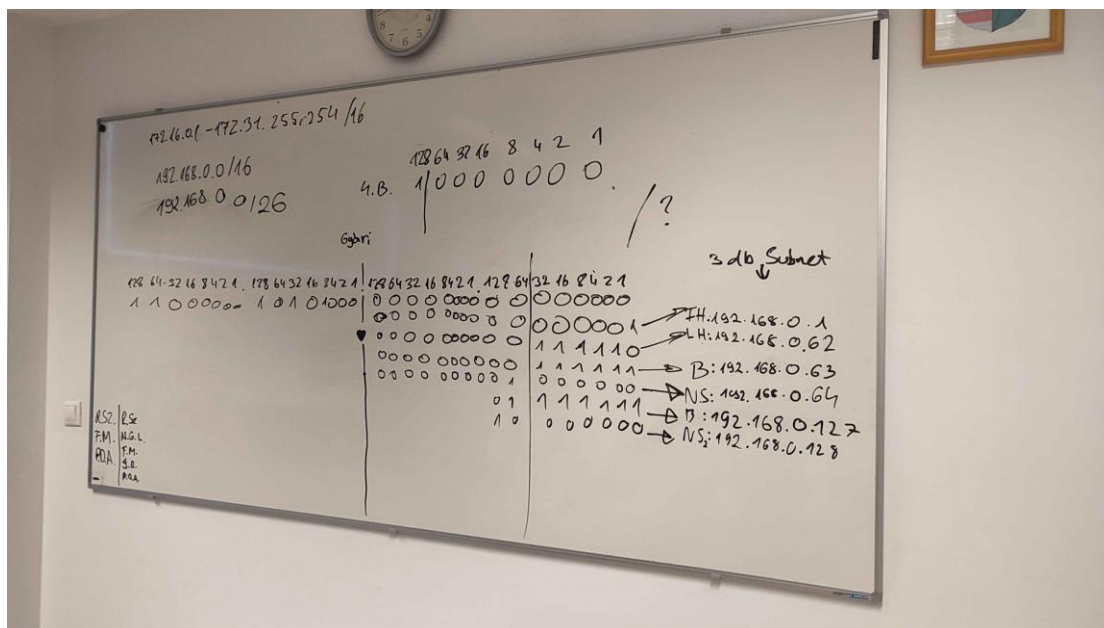 8 7 6 5 4
172.16.0.1 - 172.31.255.254 /16
192.168.0.0/16
192.168.0 0/26
128 64 32 16 8 4 2 1
4.B. 1|0 0 0 0 0 0 0.
/?
Gyári
3 db Subnet
128 64 32 16 8 4 2 1. 128 64 32 16 8 4 2 1 128 64 32 16 8 4 2 1. 128 64 32 16 8 4 2 1
1 1 0 0 0 0 0 0 1 0 1 0 1 0 0 0 0 0 0 0 0 0 0 0 0 0 0 0 0 0 0 0
0 0 0 0 0 0 0 0 0 0 0 0 0 0 0 1 FH:192.168.0.1
0 0 0 0 0 0 0 0 0 0 1 1 1 1 1 0 LH:192.168.0.62
0 0 0 0 0 0 0 0 0 0 1 1 1 1 1 1 B:192.168.0.63
0 0 0 0 0 0 0 0 0 1 0 0 0 0 0 0 NS:192.168.0.64
0 1 1 1 1 1 1 1 B:192.168.0.127
1 0 0 0 0 0 0 0 NS2:192.168.0.128
R.SZ. R.Sz
F.M. N.G.L.
P.O.A. F.M.
P.O.A.